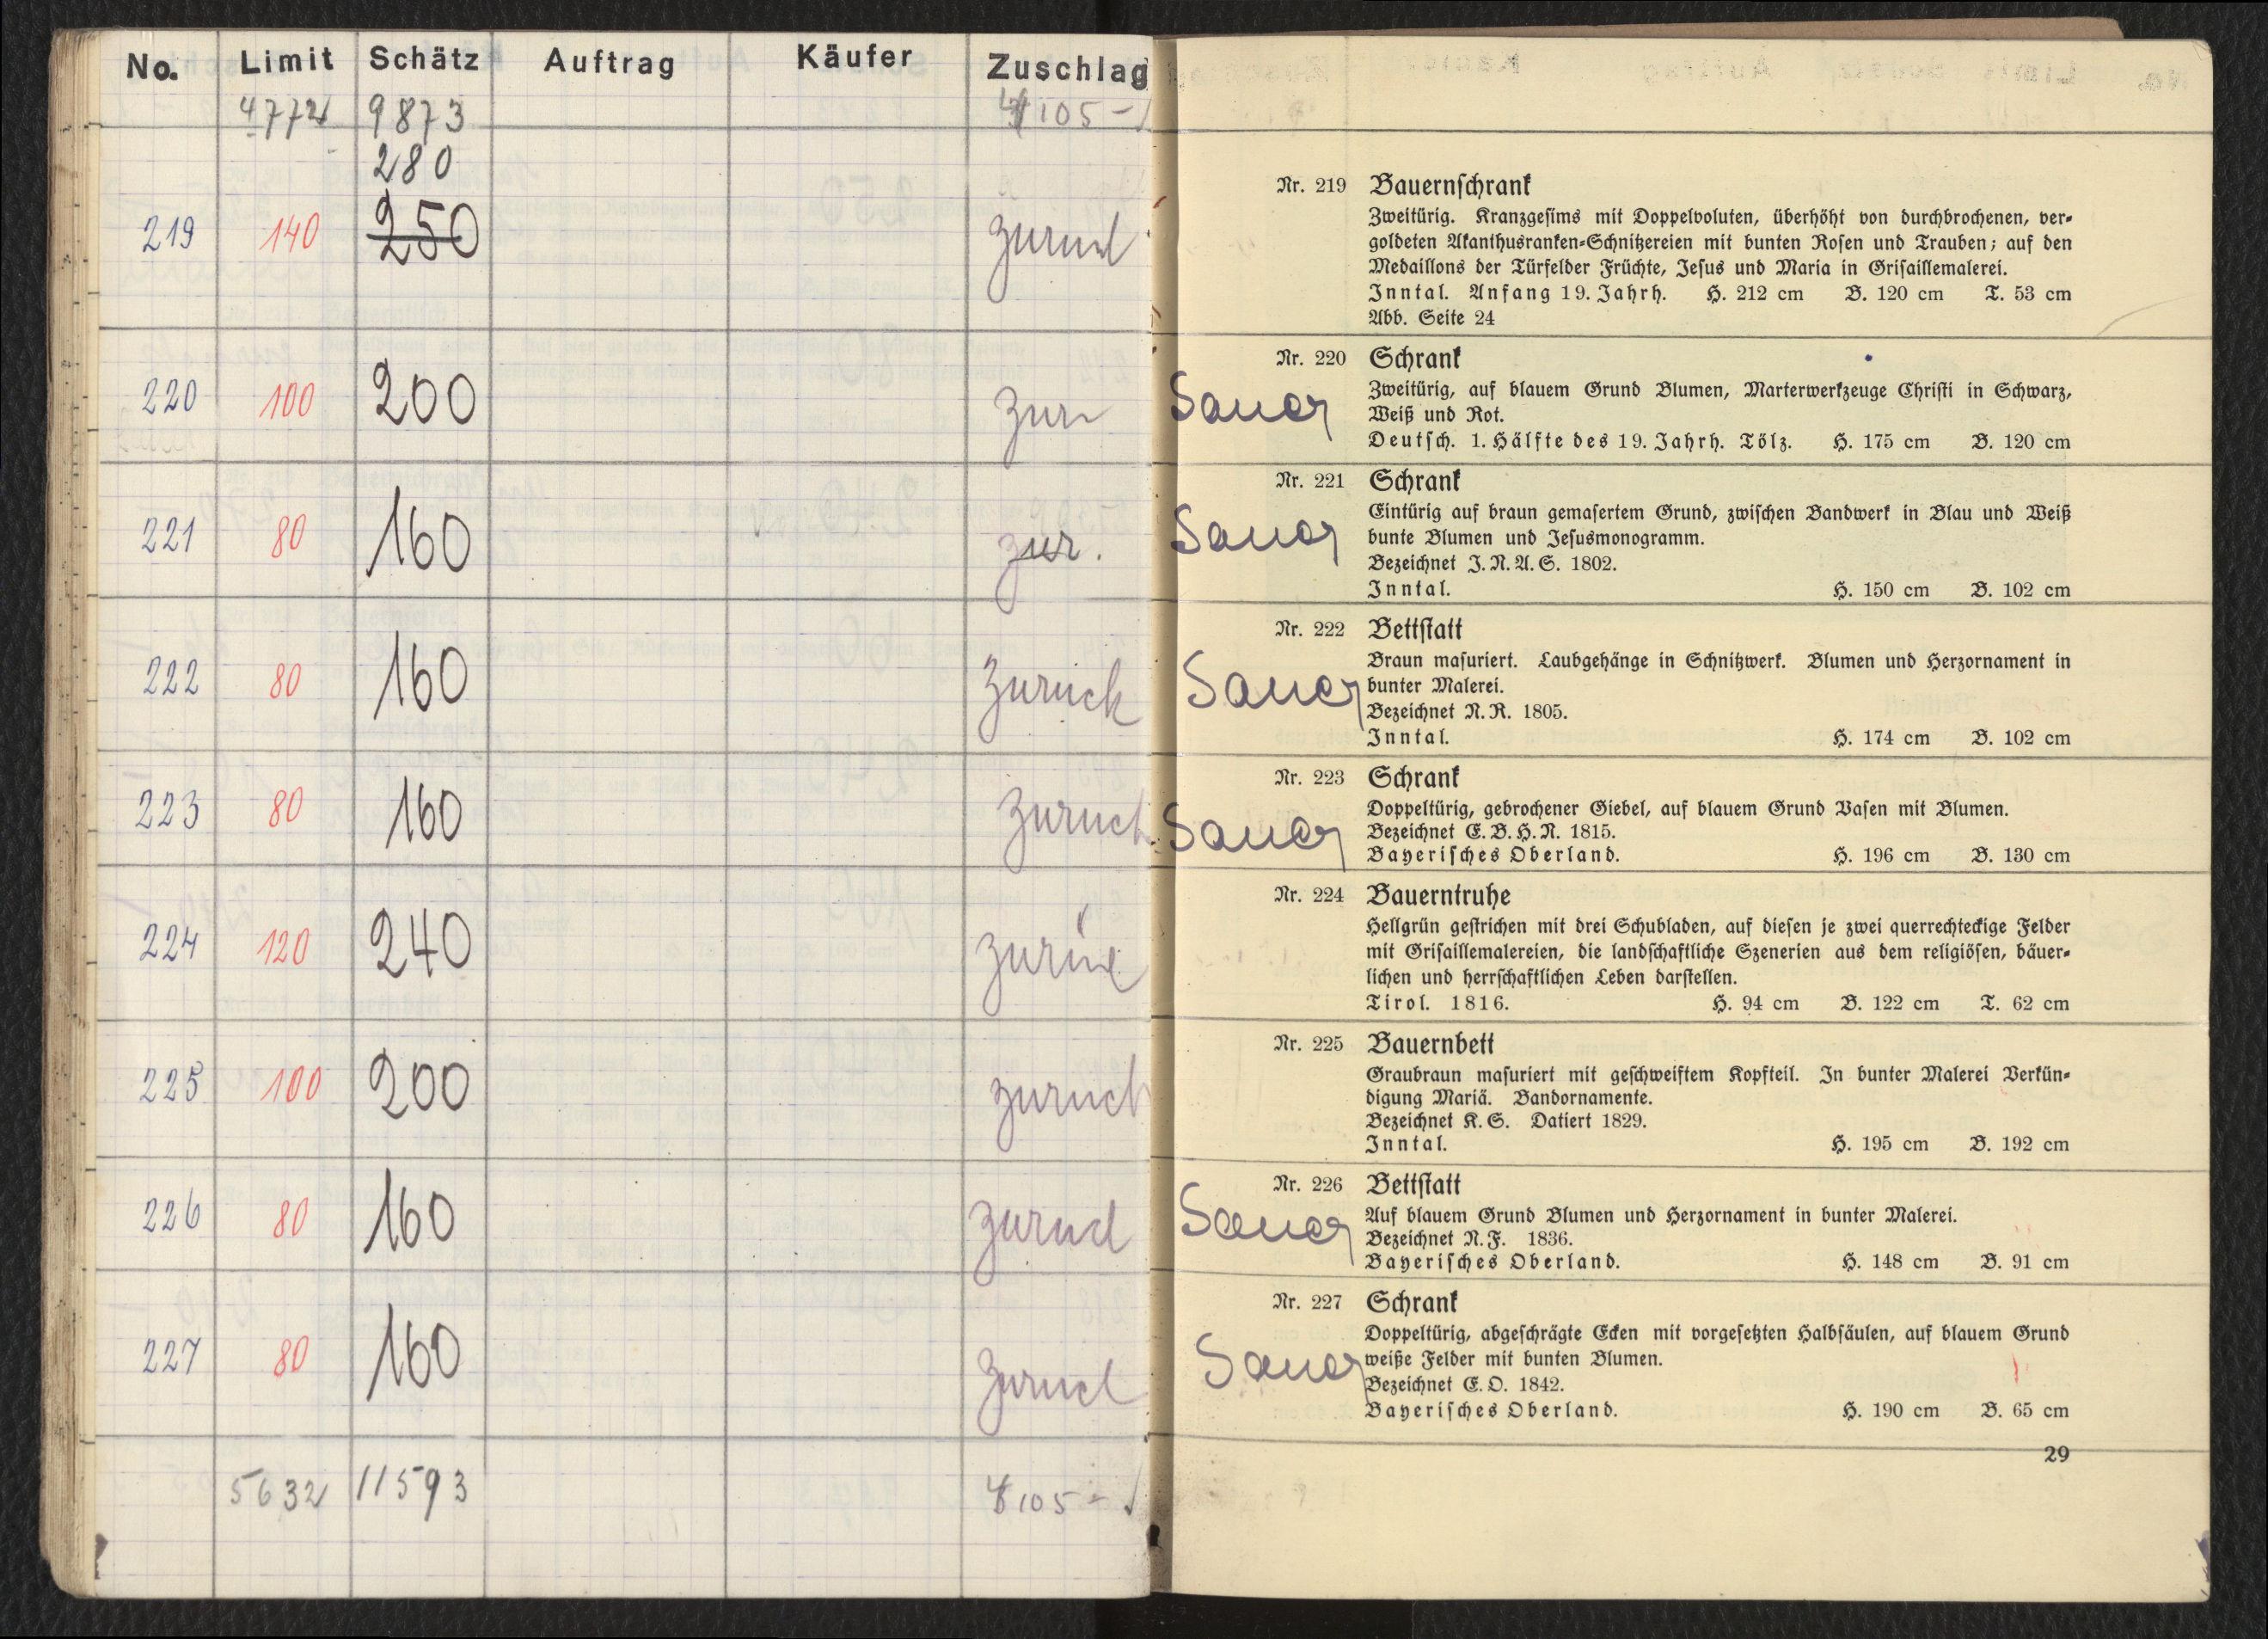 No. Limit Schätz Auftrag Käufer Zuschlag
4772 9873 4105 –
280
219 140 250 zurück
220 100 200 zur
221 80 160 zur.
222 80 160 zurück
223 80 160 zurück
224 120 240 zurück
225 100 200 zurück
226 80 160 zurück
227 80 160 zurück
5632 11593 4105 –
Nr. 219 Bauernſchrank
Zweitürig. Kranzgeſims mit Doppelvoluten, überhöht von durchbrochenen, ver-
goldeten Akanthusranken-Schnitzereien mit bunten Roſen und Trauben; auf den
Medaillons der Türfelder Früchte, Jeſus und Maria in Griſaillemalerei.
Inntal. Anfang 19. Jahrh. H. 212 cm B. 120 cm T. 53 cm
Abb. Seite 24
Nr. 220 Schrank
Sauer
Zweitürig, auf blauem Grund Blumen, Marterwerkzeuge Chriſti in Schwarz,
Weiß und Rot.
Deutſch. 1. Hälfte des 19. Jahrh. Tölz. H. 175 cm B. 120 cm
Nr. 221 Schrank
Sauer
Eintürig auf braun gemaſertem Grund, zwiſchen Bandwerk in Blau und Weiß
bunte Blumen und Jeſusmonogramm.
Bezeichnet J. N. A. S. 1802.
Inntal. H. 150 cm B. 102 cm
Nr. 222 Bettſtatt
Sauer
Braun maſuriert. Laubgehänge in Schnitzwerk. Blumen und Herzornament in
bunter Malerei.
Bezeichnet N. R. 1805.
Inntal. H. 174 cm B. 102 cm
Nr. 223 Schrank
Sauer
Doppeltürig, gebrochener Giebel, auf blauem Grund Vaſen mit Blumen.
Bezeichnet E. B. H. N. 1815.
Bayeriſches Oberland. H. 196 cm B. 130 cm
Nr. 224 Bauerntruhe
Hellgrün geſtrichen mit drei Schubladen, auf dieſen je zwei querrechteckige Felder
mit Griſaillemalereien, die landſchaftliche Szenerien aus dem religiöſen, bäuer-
lichen und herrſchaftlichen Leben darſtellen.
Tirol. 1816. H. 94 cm B. 122 cm T. 62 cm
Nr. 225 Bauernbett
Graubraun maſuriert mit geſchweiftem Kopfteil. In bunter Malerei Verkün-
digung Mariä. Bandornamente.
Bezeichnet K. S. Datiert 1829.
Inntal. H. 195 cm B. 192 cm
Nr. 226 Bettſtatt
Sauer
Auf blauem Grund Blumen und Herzornament in bunter Malerei.
Bezeichnet N. F. 1836.
Bayeriſches Oberland. H. 148 cm B. 91 cm
Nr. 227 Schrank
Sauer
Doppeltürig, abgeſchrägte Ecken mit vorgeſetzten Halbſäulen, auf blauem Grund
weiße Felder mit bunten Blumen.
Bezeichnet E. O. 1842.
Bayeriſches Oberland. H. 190 cm B. 65 cm
29